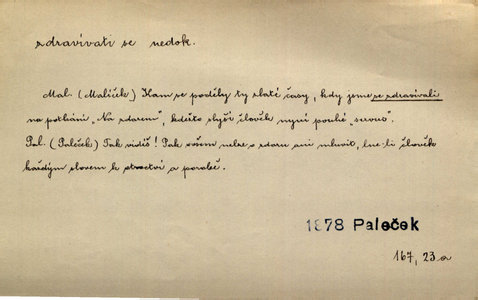 zdravívati se nedok.
Mal. (Malíček) Kam se poděly ty zlaté časy, kdy jsme se zdravívali
na potkání „Na zdarem", kdežto slyší člověk nyní pouhé „servus".
Pal. (Paleček) Tak vidíš! Pak ovšem nelze o zdaru ani mluvit, lne-li člověk
každým slovem k otroctví a porobě.
1878 Paleček
167, 23a